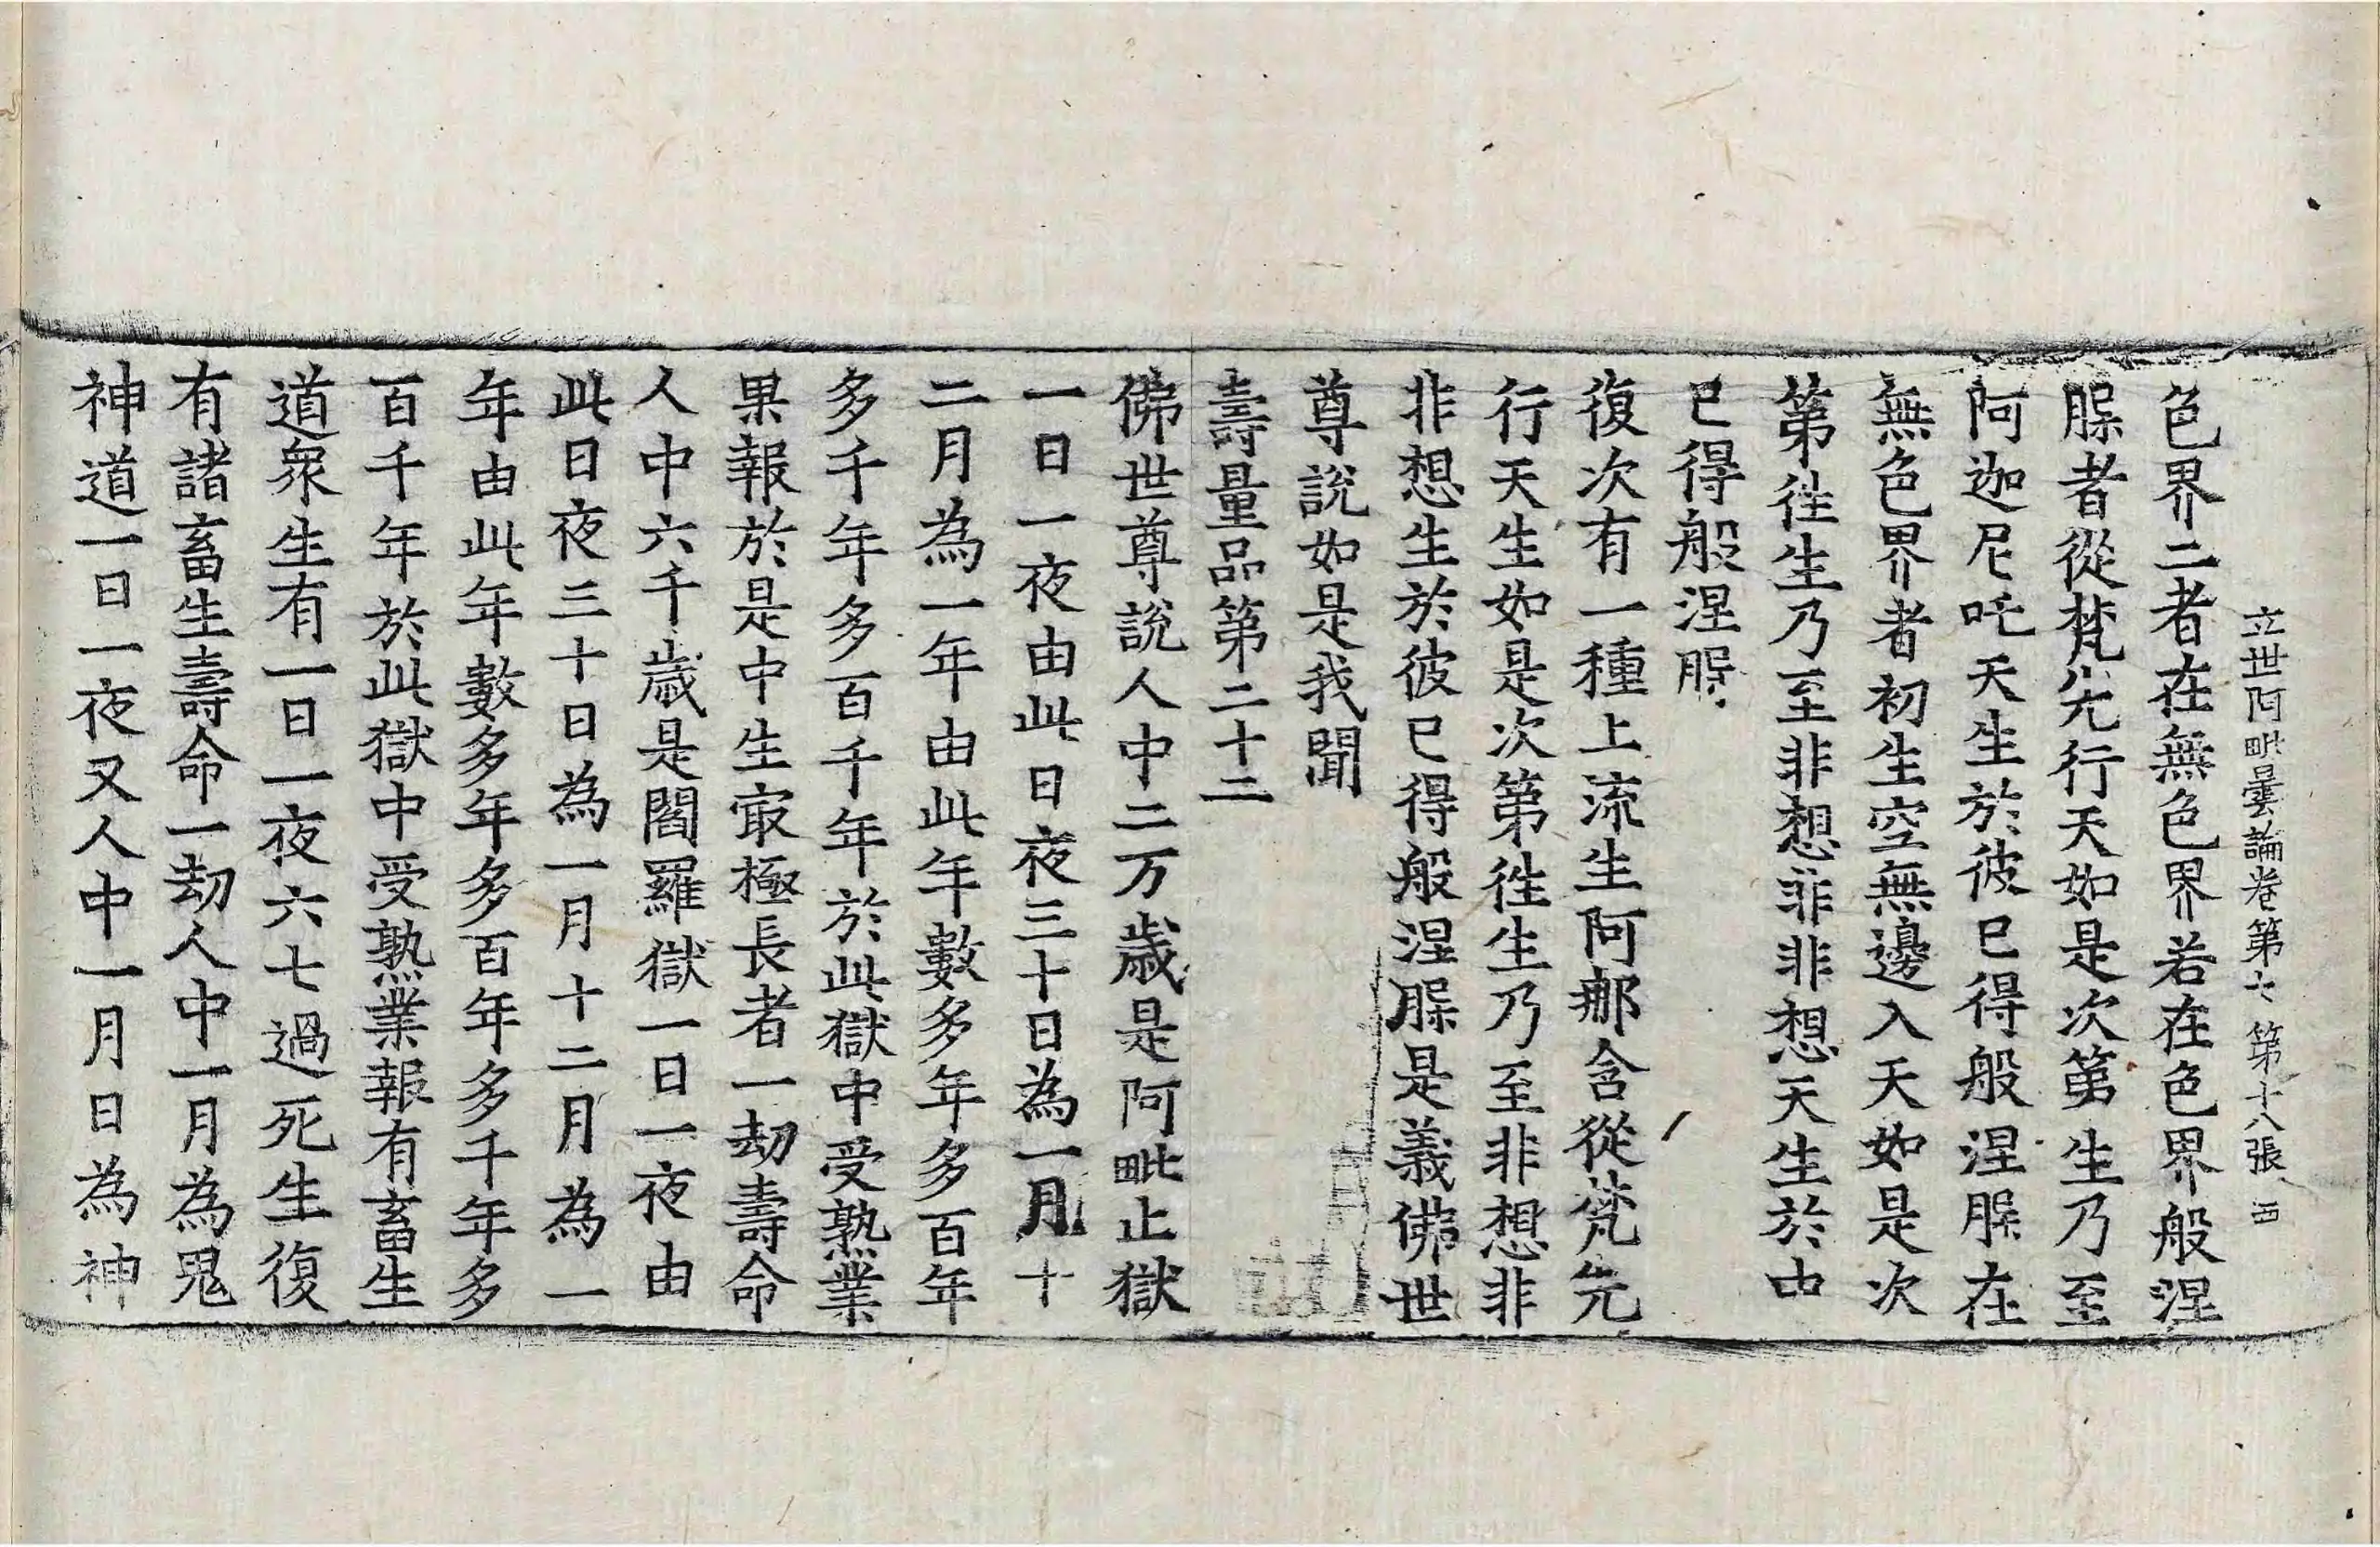 立世阿毗曇論卷第七 第十八張 西
色界二者在無色界若在色界般涅
脲者從梵先行天如是次第生乃至
阿迦尼吒天生於彼已得般涅脲在
無色界者初生空無邊入天如是次
第徃生乃至非想非非想天生於中
已得般涅脲
復次有一種上流生阿那含從梵先
行天生如是次第徃生乃至非想非
非想生於彼已得般涅脲是義佛世
尊說如是我聞
壽量品第二十二
佛世尊說人中二万歲是阿毗止獄
一日一夜由此日夜三十日為一月十
二月為一年由此年數多年多百年
多千年多百千年於此獄中受熟業
果報於是中生㝡極長者一劫壽命
人中六千歲是閻羅獄一日一夜由
此日夜三十日為一月十二月為一
年由此年數多年多百年多千年多
百千年於此獄中受熟業報有畜生
道衆生有一日一夜六七過死生復
有諸畜生壽命一劫人中一月為鬼
神道一日一夜又人中一月日為神